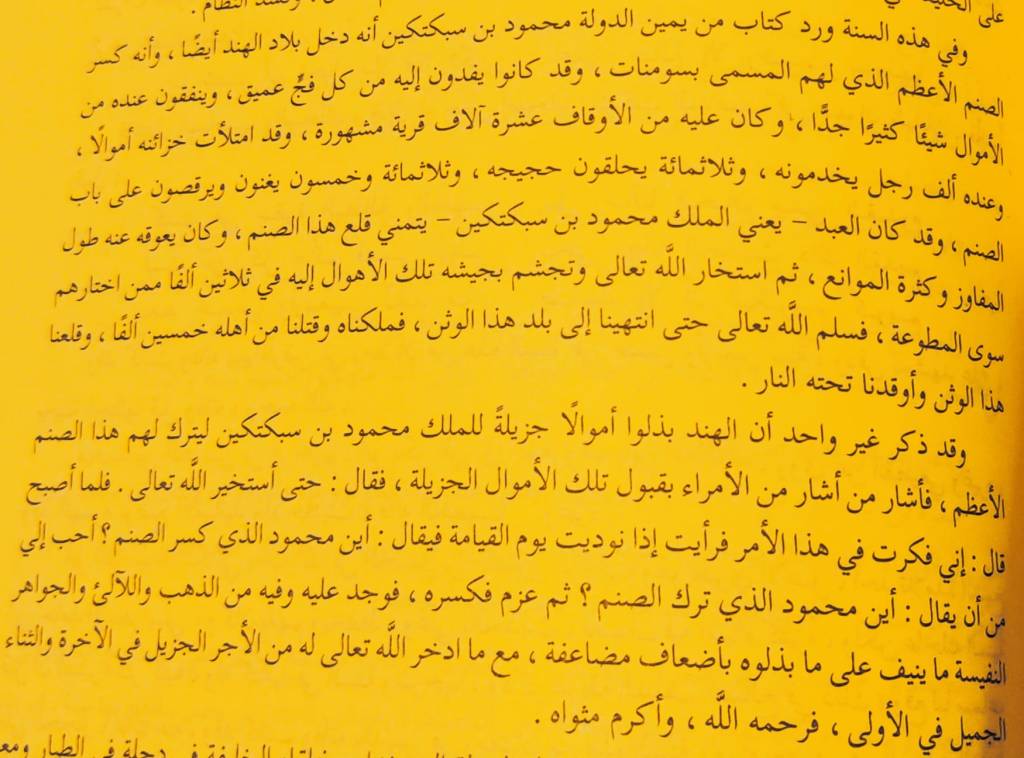 على
وفي هذه السنة ورد كتاب من يمين الدولة محمود بن سبكتكين أنه دخل بلاد الهند أيضًا ، وأنه كسر
الصنم الأعظم الذي لهم المسمى بسومنات ، وقد كانوا يفدون إليه من كل فجٍّ عميق ، وينفقون عنده من
الأموال شيئًا كثيرًا جدًّا ، وكان عليه من الأوقاف عشرة آلاف قرية مشهورة ، وقد امتلأت خزائنه أموالًا ،
وعنده ألف رجل يخدمونه ، وثلاثمائة يحلقون حجيجه ، وثلاثمائة وخمسون يغنون ويرقصون على باب
الصنم ، وقد كان العبد – يعني الملك محمود بن سبكتكين – يتمني قلع هذا الصنم ، وكان يعوقه عنه طول
المفاوز وكثرة الموانع ، ثم استخار اللَّه تعالى وتجشم بجيشه تلك الأهوال إليه في ثلاثين ألفًا ممن اختارهم
سوى المطوعة ، فسلم اللَّه تعالى حتى انتهينا إلى بلد هذا الوثن ، فملكناه وقتلنا من أهله خمسين ألفًا ، وقلعنا
هذا الوثن وأوقدنا تحته النار .
وقد ذكر غير واحد أن الهند بذلوا أموالًا جزيلةً للملك محمود بن سبكتكين ليترك لهم هذا الصنم
الأعظم ، فأشار من أشار من الأمراء بقبول تلك الأموال الجزيلة ، فقال : حتى أستخير اللَّه تعالى . فلما أصبح
قال : إني فكرت في هذا الأمر فرأيت إذا نوديت يوم القيامة فيقال : أين محمود الذي كسر الصنم ؟ أحب إلي
من أن يقال : أين محمود الذي ترك الصنم ؟ ثم عزم فكسره ، فوجد عليه وفيه من الذهب واللآلئ والجواهر
النفيسة ما ينيف على ما بذلوه بأضعاف مضاعفة ، مع ما ادخر اللَّه تعالى له من الأجر الجزيل في الآخرة والثناء
الجميل في الأولى ، فرحمه اللَّه ، وأكرم مثواه .
الخليفة في دجلة في الطيار